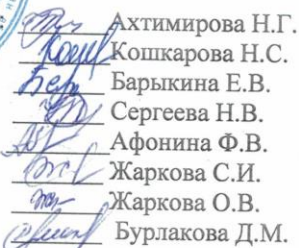 Ахтимирова Н.Г.
Кошкарова Н.С.
Барыкина Е.В.
Сергеева Н.В.
Афонина Ф.В.
Жаркова С.И.
Жаркова О.В.
Бурлакова Д.М.